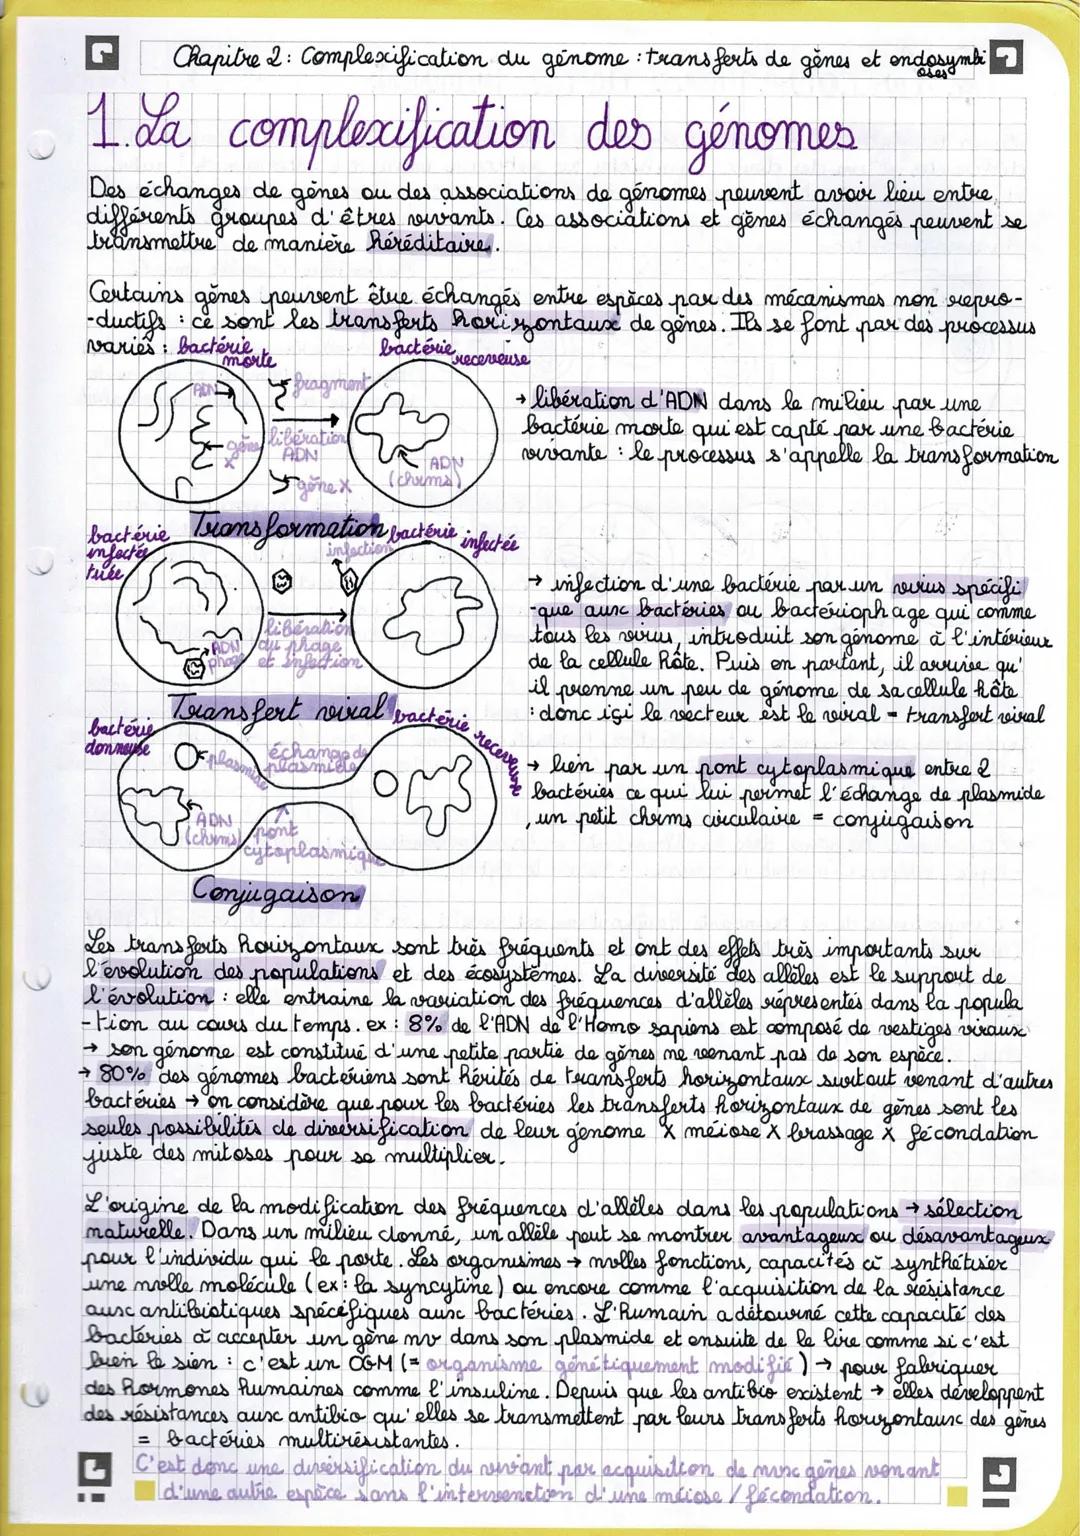 Chapitre 2 : Complexification du génome : transferts de gènes et endosymbi
oses
1. La complexification des génomes
Des échanges de gènes ou des associations de génomes peuvent avoir lieu entre
différents groupes d'êtres vivants. Ces associations et gènes échangés peuvent se
transmettre de manière héréditaire.
Certains gènes peuvent être échangés entre espèces par des mécanismes non repro-
-ductifs : ce sont les transferts horizontaux de gènes. Ils se font par des processus
variés :
bactérie
morte
bactérie
receveuse
ADN
fragment
gène
X
libération
ADN
gène X
ADN
(chrms)
→ libération d'ADN dans le milieu par une
bactérie morte qui est capté par une bactérie
vivante : le processus s'appelle la transformation
Transformation
bactérie
infectée
tuée
infection
bactérie infectée
ADN
phage
libération
du phage
et infection
→ infection d'une bactérie par un virus spécifi
-que aux bactéries ou bactériophage qui comme
tous les virus, introduit son génome à l'intérieur
de la cellule hôte. Puis en partant, il arrive qu'
il prenne un peu de génome de sa cellule hôte
: donc içi le vecteur est le viral = transfert viral
Transfert viral
bactérie
donneuse
bactérie receveuse
plasmide
échange de
plasmide
ADN
(chrms)
pont
cytoplasmique
→ lien par un pont cytoplasmique entre 2
bactéries ce qui lui permet l'échange de plasmide
, un petit chrms circulaire = conjugaison
Conjugaison
Les transferts horizontaux sont très fréquents et ont des effets très importants sur
l'évolution des populations et des écosystèmes. La diversité des allèles est le support de
l'évolution : elle entraine la variation des fréquences d'allèles réprésentés dans la popula
-tion au cours du temps. ex : 8% de l'ADN de l'Homo sapiens est composé de vestiges viraux
→ son génome est constitué d'une petite partie de gènes ne venant pas de son espèce.
→ 80% des génomes bactériens sont hérités de transferts horizontaux surtout venant d'autres
bactéries → on considère que pour les bactéries les transferts horizontaux de gènes sont les
seules possibilités de diversification de leur génome X méiose X brassage X fécondation
juste des mitoses pour se multiplier.
L'origine de la modification des fréquences d'allèles dans les populations → sélection
naturelle. Dans un milieu donné, un allèle peut se montrer avantageux ou désavantageux
pour l'individu qui le porte. Les organismes → nvlles fonctions, capacités à synthétiser
une nvlle molécule (ex : la syncytine) ou encore comme l'acquisition de la résistance
aux antibiotiques spécifiques aux bactéries. L'humain a détourné cette capacité des
bactéries à accepter un gène nv dans son plasmide et ensuite de le lire comme si c'est
bien le sien : c'est un OGM (= organisme génétiquement modifié) → pour fabriquer
des hormones humaines comme l'insuline. Depuis que les antibio existent → elles développent
des résistances aux antibio qu'elles se transmettent par leurs transferts horizontaux des gènes
= bactéries multirésistantes.
C'est donc une diversification du vivant par acquisition de nvx gènes venant
d'une autre espèce sans l'intervenction d'une méiose / fécondation.